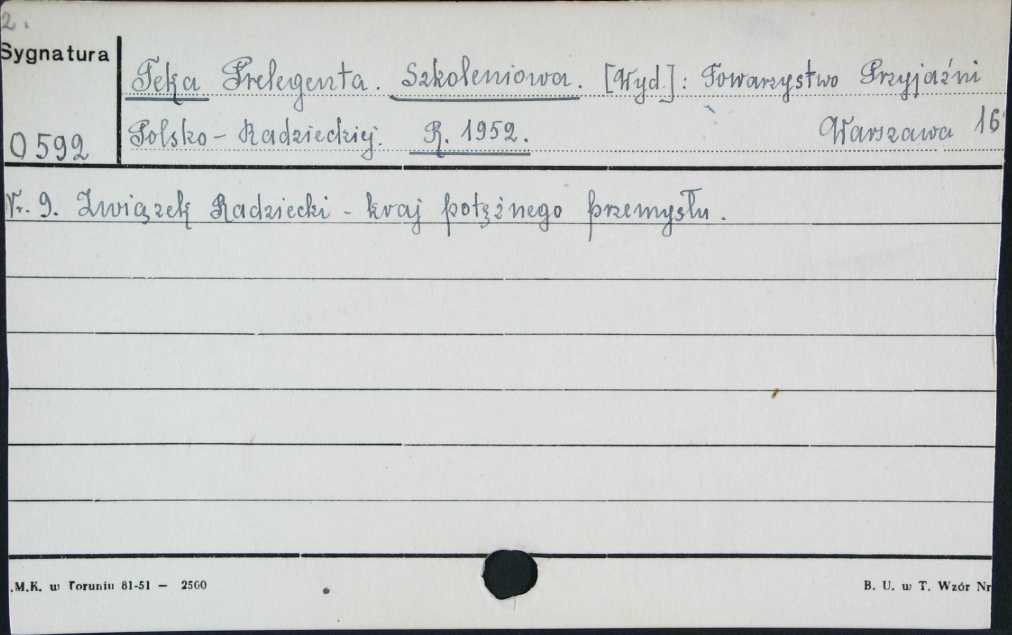 2.
Sygnatura
Teka Prelegenta. Szkoleniowa. [Wyd.]: Towarzystwo Przyjaźni
Polsko - Radzieckiej. R. 1952. Warszawa 16°
O 592
Nr. 9. Związek Radziecki - kraj potężnego przemysłu.
.M.K. w Toruniu 81-51 — 2500
B. U. w T. Wzór Nr